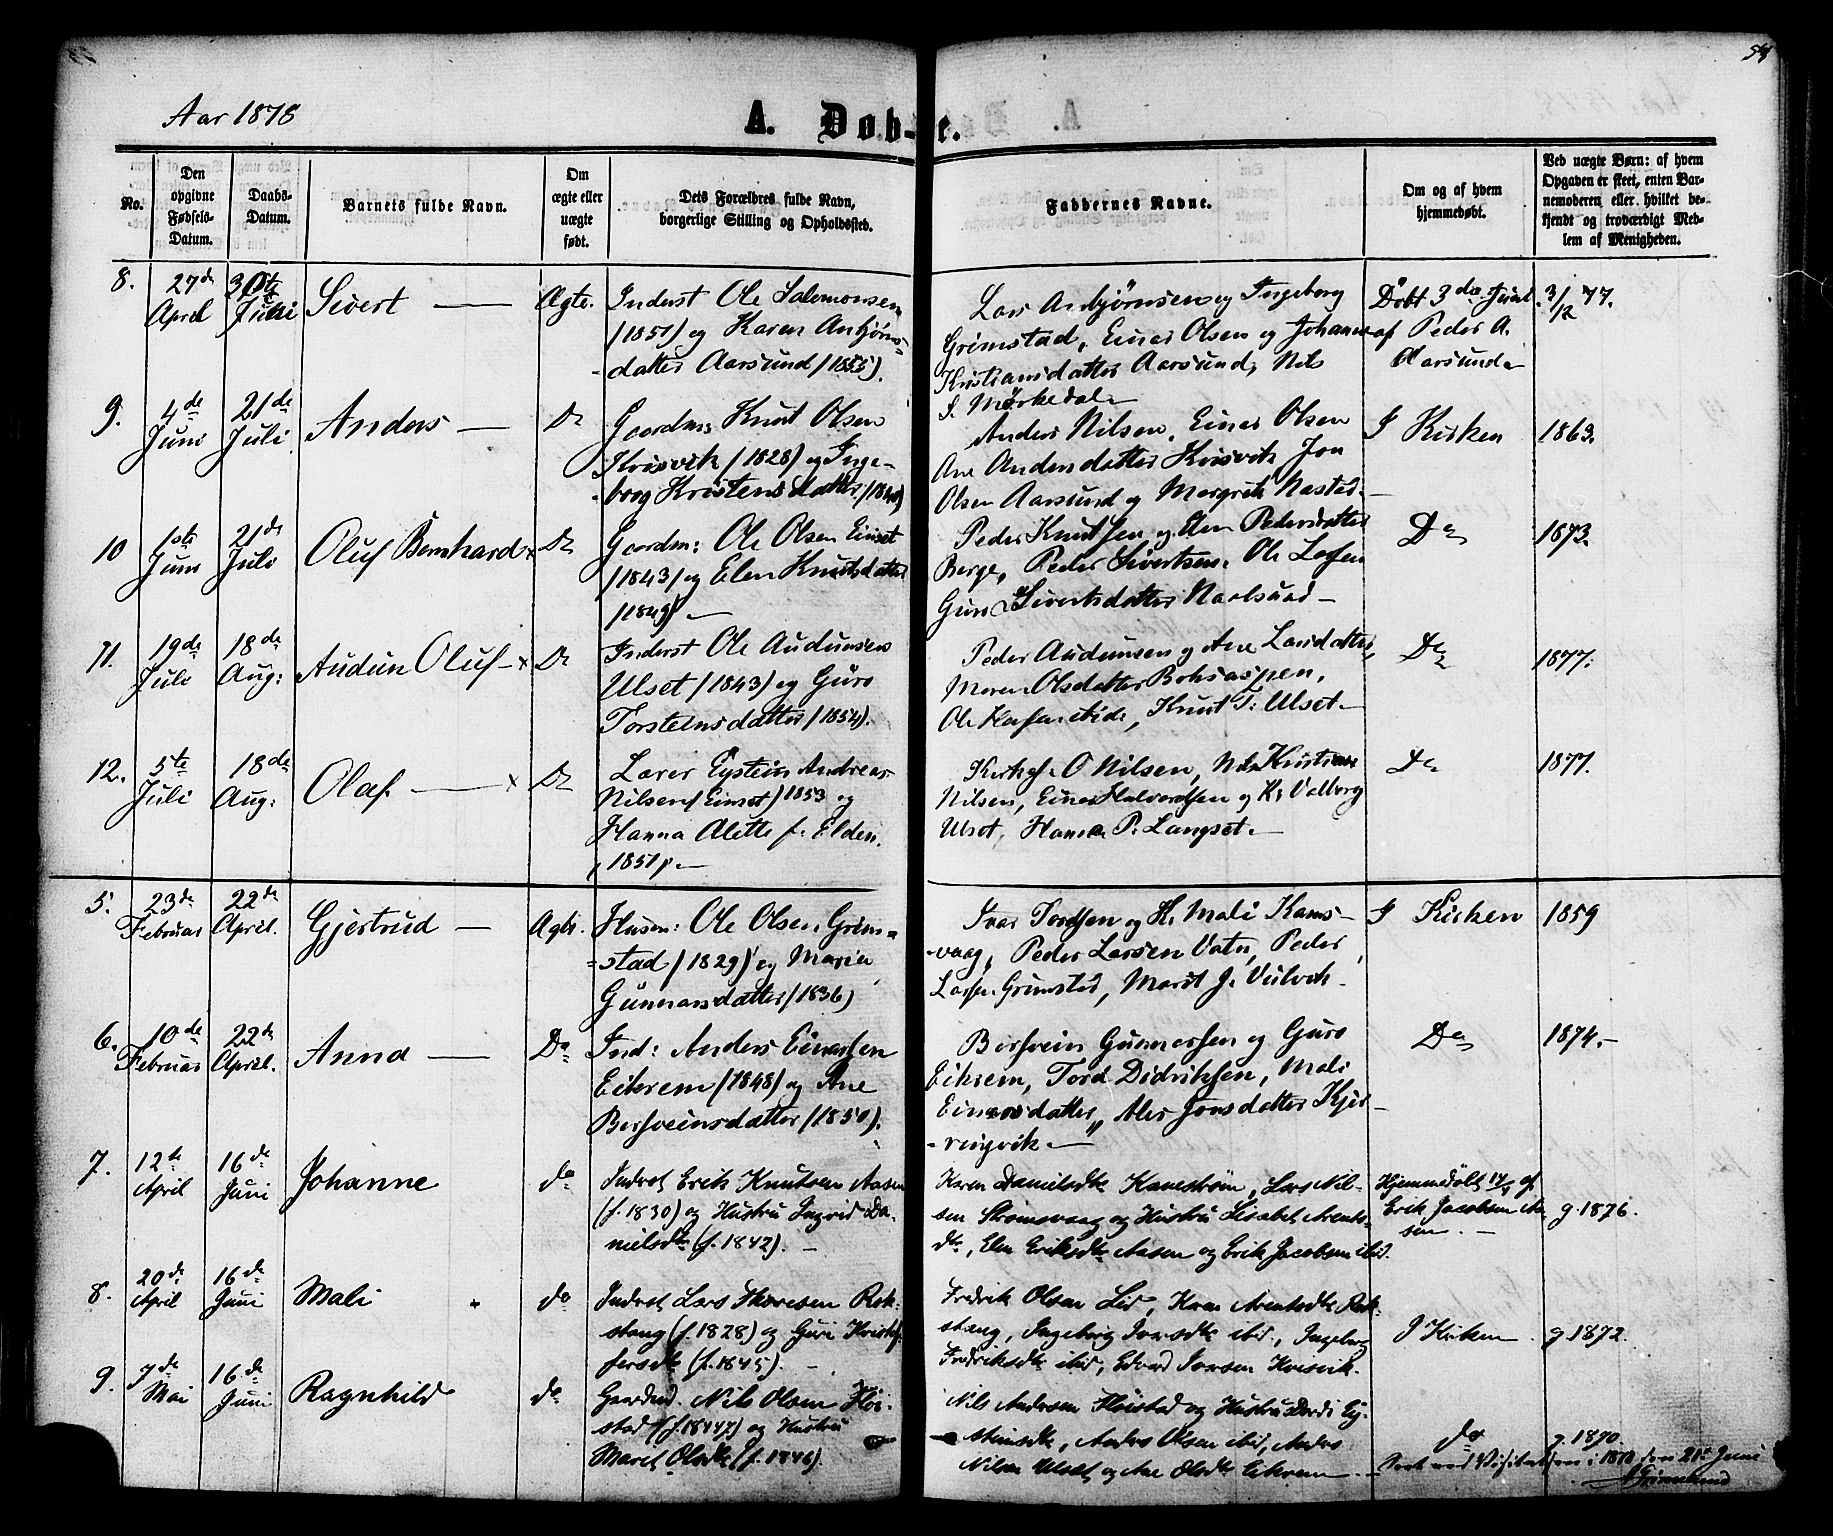 54
Aar 1878
A. Døb-
te.
No.
Den
opgivne
Fødsels-
Datum.
Daabs-
Datum.
Barnets fulde Navn.
Om
ægte eller
uægte
født.
Dets Forældres fulde Navn,
borgerlige Stilling og Opholdssted.
Faddernes Navne.
Om og af hvem
hjemmedøbt.
Ved uægte Børn: af hvem
Opgaven er skeet, enten Bar-
nemoderen eller hvilket be-
kjendt og troværdigt Med-
lem af Menigheden.
8.
27de
April
30te
Juni
Sivert
Ægte.
Inderst Ole Salomonsen
(1851) og Karen Anbjørns-
datter Aarsund (1855).
Lars Anbjørnsen og Ingeborg
Grimstad, Einar Olsen og Johanne
Kristiansdatter Aarsund, Nils
S. Mørkedal
Døbt 3de Juni
af Peder A.
Aarsund
3/12 77.
9.
4de
Juni
21de
Juli
Anders
Do
Gaardm: Knut Olsen
Kvisvik (1828) og Inge-
borg Kristensdatter (1840)
Anders Nilsen, Einar Olsen
Ane Andersdatter Kvisvik Jon
Olsen Aarsund og Margrete Nastad
I Kirken
1863.
10
1ste
Juni
21de
Juli
Oluf Bernhard x
Do
Gaardm: Ole Olsen Einset
(1843) og Elen Knutsdatter
(1849)
Peder Knutsen og Elen Pedersdatter
Berge, Peder Sivertsen, Ole Larsen
Guro Sivertsdatter Naalsund
Do
1873.
11.
19de
Juli
18de
Aug:
Audun Oluf x
Do
Inderst Ole Audunsen
Ulset (1843) og Guro
Torsteinsdatter (1854).
Peder Audunsen og Ane Larsdatter,
Maren Olsdatter Bolsaspen,
Ole ibid, Knut T. Ulset
Do
1877.
12.
5te
Juli
18de
Aug:
Olaf x
Do
Lærer Eystein Andreas
Nilsen Einset (1853 og
Hanna Alette f. Elden
(1851)
Kirkes. O Nilsen, Nils Kristian
Nilsen, Einar Halvordsen og K. Valborg
Ulset, Hanna P. Langset
Do
1877.
5.
23de
Februar
22de
April.
Gjertrud
Ægte.
Husm: Ole Olsen Grim-
stad (1829) og Maria
Gunnarsdatter (1836)
Ivar Tordsen og H. Mali Kams-
vaag, Peder Larsen Vatn, Peder
Larsen Grimstad, Marit J. Vulvik
I Kirken
1859
6.
10de
Februar
22de
April.
Anna
Do
Ind: Anders Einarsen
Eikrem (1848) og Ane
Bersveinsdatter (1850).
Bersvein Gunnarsen og Guro
Eikrem, Tord Didriksen, Mali
Einarsdatter, Ales Jonsdatter Kjer-
ringvik
Do
1874.
7.
12te
April
16de
Juni
Johanne
do
Inderst Erik Knutsen Aasen
(f. 1830) og Hustru Ingrid Da-
nielsdtr (f. 1842).
Karen Danielsdtr Kanestrøm, Lars Nil-
sen Strømsvaag og Hustru Lisabet Arents-
dtr, Elen Eriksdtr Aasen og Erik Jacobsen ibid.
Hjemmedøbt 14/4 af
Erik Jacobsen Aa-
sen.
g. 1876.
8.
20de
April
16de
Juni
Mali
do
Inderst Lars Thoresen Rok-
stang (f. 1828) og Guri Kristof-
fersdtr (f. 1845).
Fredrik Olsen Lid, Karen Arentsdtr Rok-
stang, Ingeborg Larsdtr ibid, Ingeborg
Fredriksdtr ibid, Edvard Larsen Kvisvik.
I Kirken
g. 1872.
9.
7de
Mai
16de
Juni
Ragnhild
do
Gaardmd. Nils Olsen Høi-
stad (f. 1847) og Hustru
Marit Olsdtr (f. 1846).
Nils Andersen Høistad og Hustru Dordi Ey-
steinsdtr, Anders Olsen ibid, Anders
Nilsen Ulset og Ane Olsdtr Eikrem
do
g. 1870.
Seet ved Visitatsen i 1878 den 21de Juni